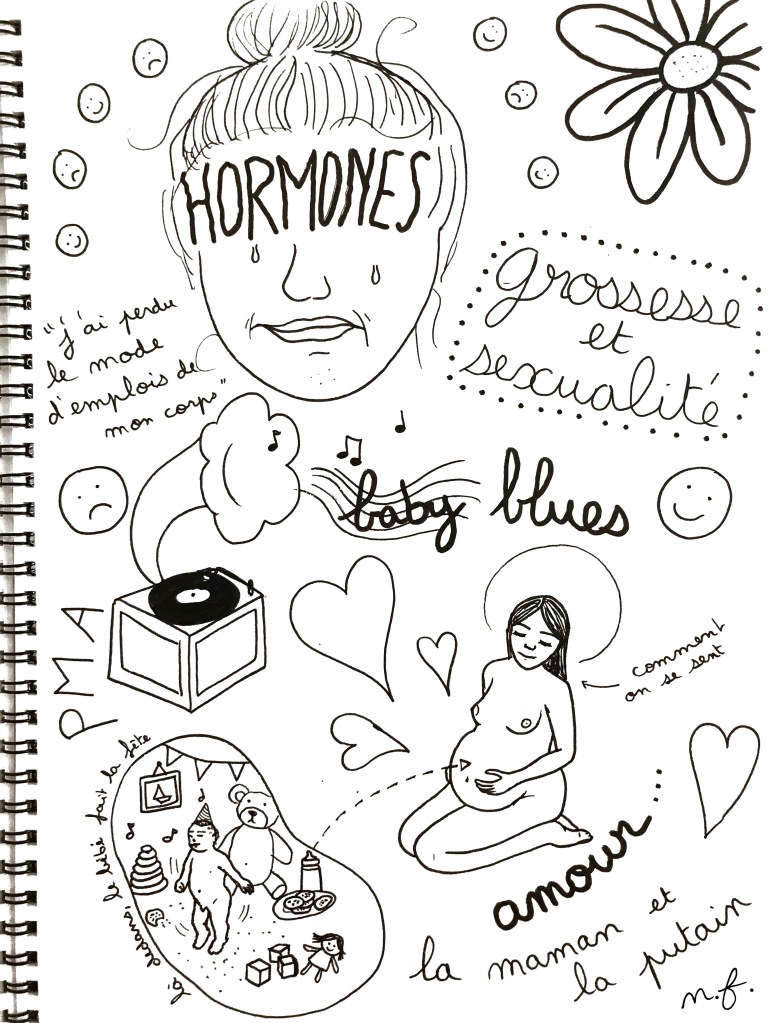 HORMONES
grossesse
et
sexualité
"j'ai perdu
le mode
d'emplois de
mon corps"
baby blues
PMA
comment
on se sent
dedans le bébé fait la fête
amour...
la maman et
la putain
n.f.